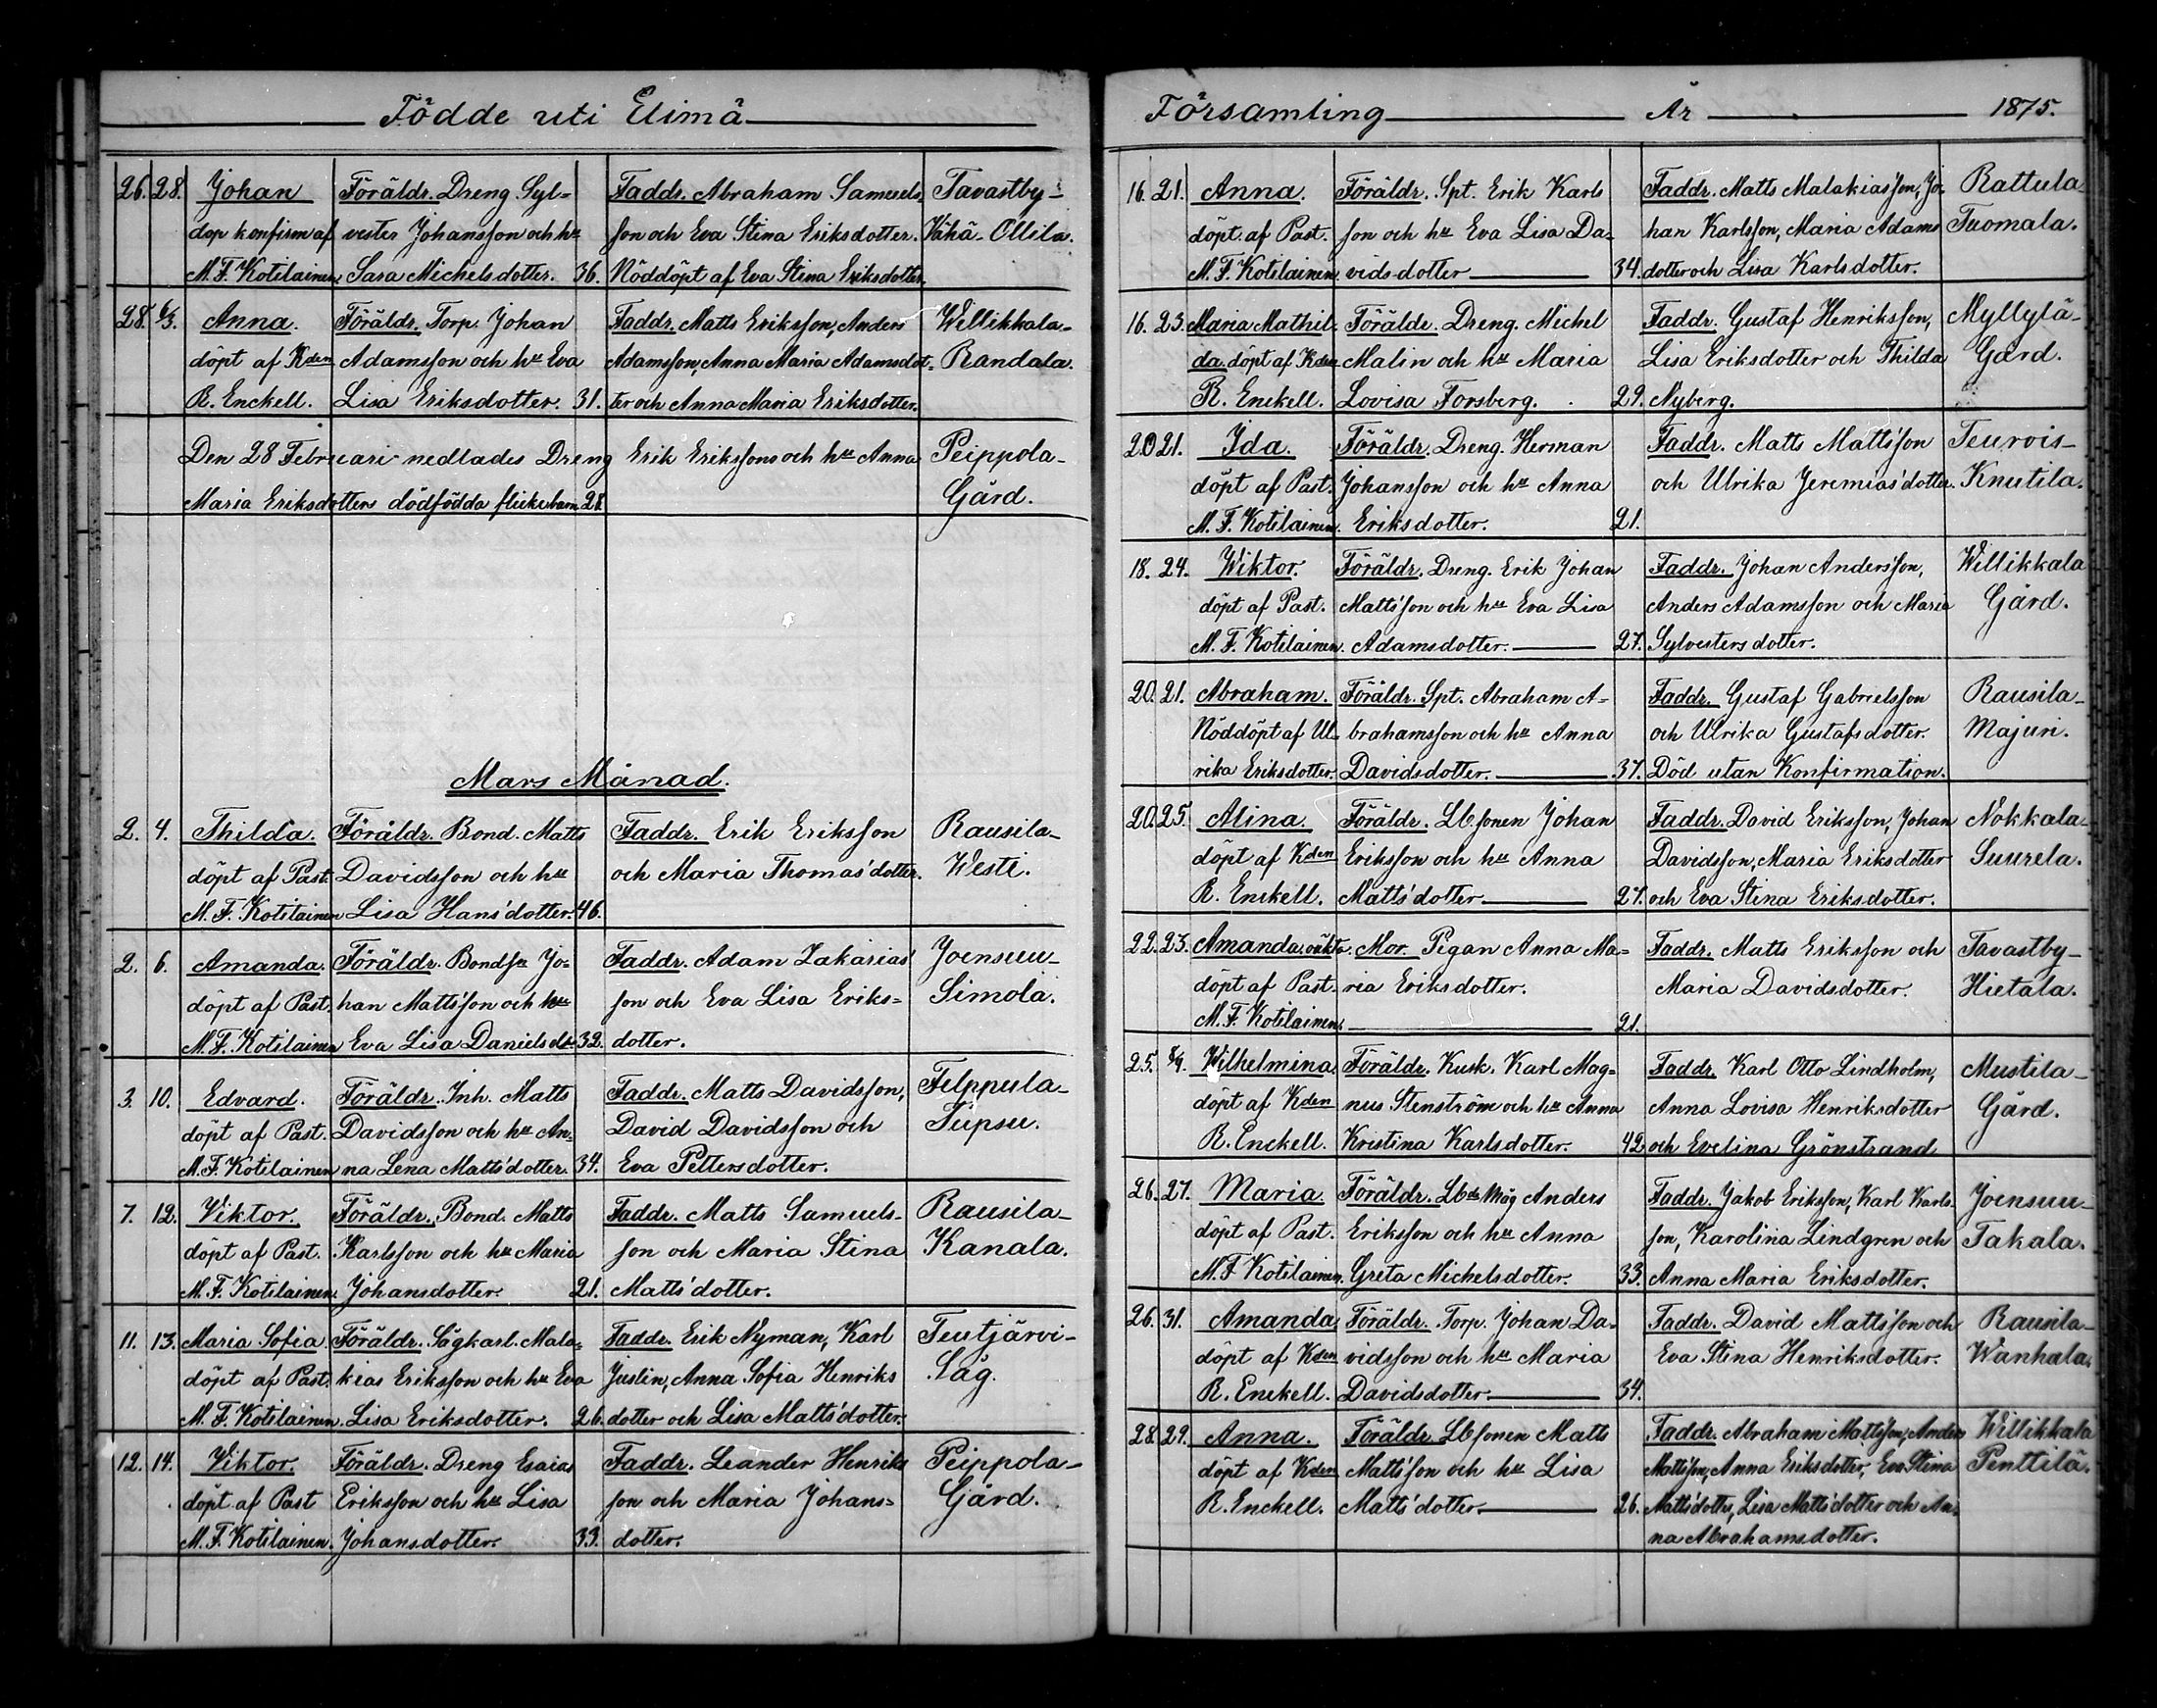 Födde uti Elimä
26. 28. Johan Föräldr. Dreng Syl= Faddr. Abraham Samuels Tavastby-
dop konfirm af vester Johansson och hu son och Eva Stina Eriksdotter. Vähä-Ollila.
M. F. Kotilainen. Sara Michelsdotter. 36. Nöddöpt af Eva Stina Eriksdotter.
28. 6/3. Anna. Föräldr. Torp. Johan Faddr. Matts Eriksson, Anders Willikkala-
döpt af Kden Adamsson och hu Eva Adamsson, Anna Maria Adamsdot- Randala.
R. Enckell. Lisa Eriksdotter. 31. ter och Anna Maria Eriksdotter.
Den 28 Februari nedlades Dreng Erik Erikssons och hu Anna Peippola-
Maria Eriksdotters dödfödda flickebarn 28. Gård.
Mars Månad.
2. 4. Thilda. Föräldr. Bond. Matts Faddr. Erik Eriksson Rausila-
döpt af Past. Davidsson och hu och Maria Thomas'dotter. Westi.
M. F. Kotilainen Lisa Hans'dotter. 46.
2. 6. Amanda. Föräldr. Bondsn Jo= Faddr. Adam Zakarias' Joensuu-
döpt af Past. han Matts'son och hu son och Eva Lisa Eriks= Simola.
M. F. Kotilainen Eva Lisa Danielsdr 32. dotter.
3. 10. Edvard. Föräldr. Inh. Matts Faddr. Matts Davidsson, Felppula-
döpt af Past. Davidsson och hu An= David Davidsson och Tupsu.
M. F. Kotilainen na Lena Matts'dotter. 34. Eva Pettersdotter.
7. 12. Viktor. Föräldr. Bond. Matts Faddr. Matts Samuels- Rausila-
döpt af Past. Karlsson och hu Maria son och Maria Stina Kanala.
M. F. Kotilainen Johansdotter. 21. Matts'dotter.
11. 13. Maria Sofia. Föräldr. Sågkarl. Mala= Faddr. Erik Nyman, Karl Teutjärvi-
döpt af Past. kias Eriksson och hu Eva Juslin, Anna Sofia Henriks Såg.
M. F. Kotilainen. Lisa Eriksdotter. 26. dotter och Lisa Matts'dotter.
12. 14. Viktor. Föräldr. Dreng Esaias Faddr. Leander Henriks Peippola-
döpt af Past Eriksson och hu Lisa son och Maria Johans= Gård.
M. F. Kotilainen. Johansdotter. 33. dotter.
Församling År 1875.
16. 21. Anna. Föräldr. Spt. Erik Karls Faddr. Matts Malakias'son, Jo- Rattula-
döpt. af Past. son och hu Eva Lisa Da= han Karlsson, Maria Adams Tuomala.
M. F. Kotilainen. vidsdotter 34. dotter och Lisa Karlsdotter.
16. 23. Maria Mathil- Föräldr. Dreng. Michel Faddr. Gustaf Henriksson, Myllylä-
da. döpt af Kden Malin och hu Maria Lisa Eriksdotter och Thilda Gård.
R. Enckell. Lovisa Forsberg. 29. Nyberg.
20 21. Ida. Föräldr. Dreng. Herman Faddr. Matts Matts'son Teurois-
döpt af Past. Johansson och hu Anna och Ulrika Jeremias'dotter. Knutila.
M. F. Kotilainen. Eriksdotter. 21.
18. 24. Wiktor. Föräldr. Dreng. Erik Johan Faddr. Johan Andersson, Willikkala
döpt af Past. Matts'son och hu Eva Lisa Anders Adamsson och Maria Gård.
M. F. Kotilainen. Adamsdotter. 27. Sylvestersdotter.
20. 21. Abraham. Föräldr. Spt. Abraham A= Faddr. Gustaf Gabrielsson Rausila-
Nöddöpt af Ul- brahamsson och hu Anna och Ulrika Gustafsdotter. Majuri.
rika Eriksdotter. Davidsdotter. 37. Död utan Konfirmation.
20. 25. Alina. Föräldr. Lbsonen Johan Faddr. David Eriksson, Johan Nokkala-
döpt af Kden Eriksson och hu Anna Davidsson, Maria Eriksdotter Suurela.
R. Enckell. Matts'dotter. 27. och Eva Stina Eriksdotter.
22. 23. Amanda. oäkta. Mor. Pigan Anna Ma= Faddr. Matts Eriksson och Tavastby-
döpt af Past. ria Eriksdotter. Maria Davidsdotter. Hietala.
M. F. Kotilainen. 21.
25. Wilhelmina. Föräldr. Kusk. Karl Mag= Faddr. Karl Otto Lindholm, Mustila-
döpt af Kden nus Stenström och hu Anna Anna Lovisa Henriksdotter Gård.
R. Enckell. Kristina Karlsdotter. 42. och Evelina Grönstrand
26. 27. Maria. Föräldr. Lbds Måg Anders Faddr. Jakob Eriksson, Karl Karls- Joensuu-
döpt af Past. Eriksson och hu Anna son, Karolina Lindgren och Takala.
M. F Kotilainen. Greta Michelsdotter. 33. Anna Maria Eriksdotter.
26. 31. Amanda. Föräldr. Torp. Johan Da- Faddr. David Matts'son och Rausila-
döpt af Kden vidsson och hu Maria Eva Stina Henriksdotter. Wanhala.
R. Enckell. Davidsdotter. 34.
28. 29. Anna. Föräldr. Lbsonen Matts Faddr. Abraham Matts'son, Anders Willikkala
döpt af Kden Matts'son och hu Lisa Matts'son, Anna Eriksdotter, Eva Stina Penttilä.
R. Enckell. Matts'dotter. 26. Matts'dotter, Lisa Matts'dotter och An-
na Abrahamsdotter.